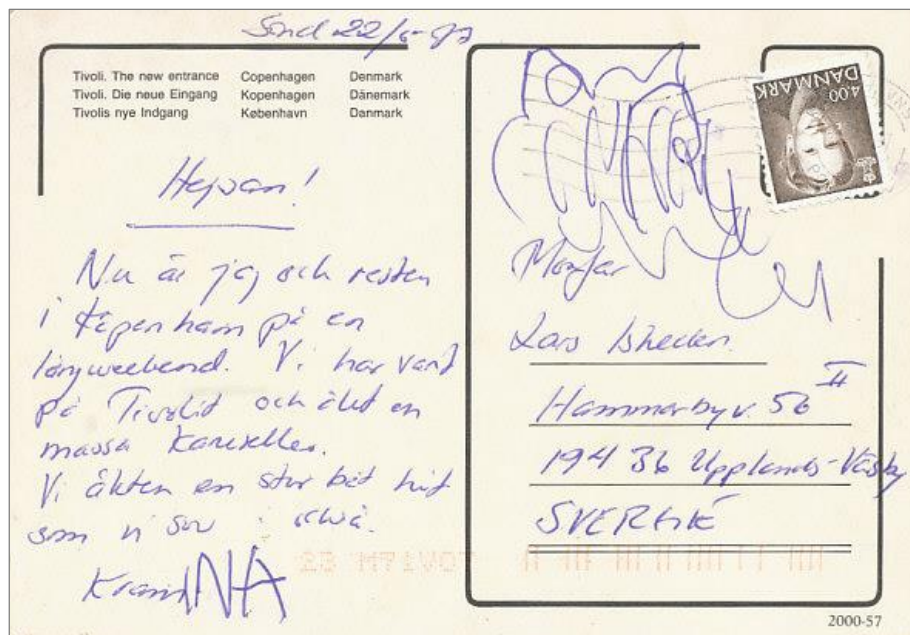 Sönd 22/6-97
Tivoli. The new entrance Copenhagen Denmark
Tivoli. Die neue Eingang Kopenhagen Dänemark
Tivolis nye Indgang København Danmark
Hejsan!
Nu är jag och resten
i Köpenhamn på en
långweekend. Vi har varit
på Tivolit och åkt en
massa karuseller.
Vi åkten en stor båt hit
som vi sov i
Kram NA
DANMARK
4.00
Morfar
Lars
Hammarbyv. 56 II
194 36 Upplands-Väsby
SVERIGE
2000-57